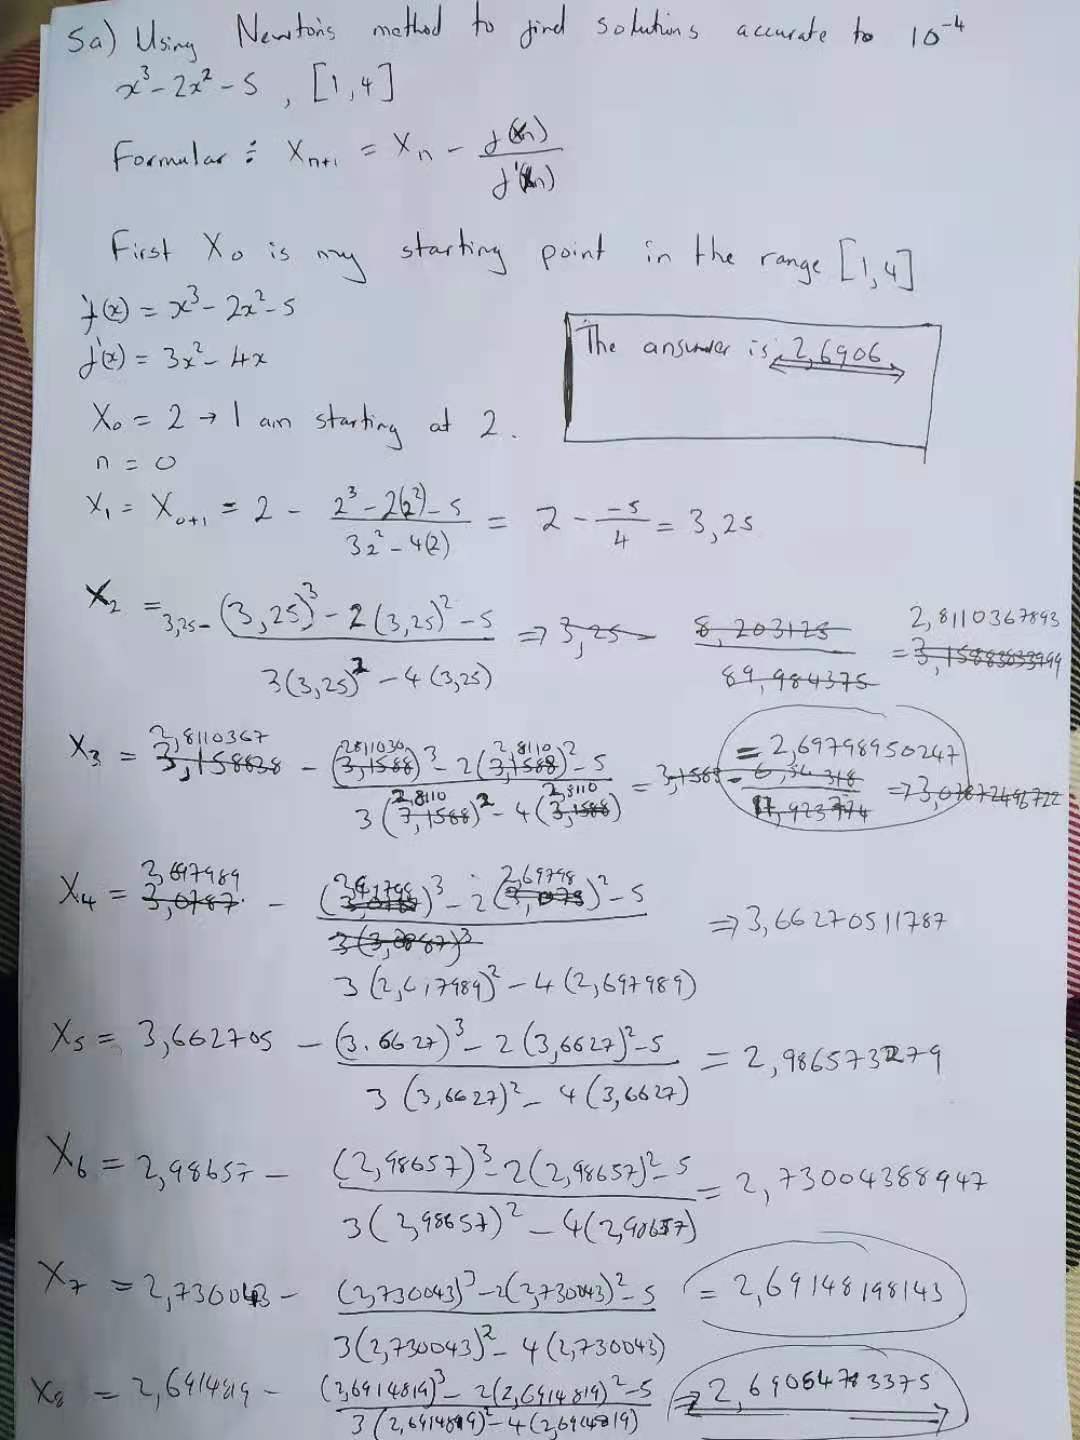 5a) Using Newton's method to find solutions accurate to 10⁻⁴
x³ - 2x² - 5 , [1,4]
Formular : Xₙ₊₁ = Xₙ - f(xₙ) / f'(xₙ)
First X₀ is my starting point in the range [1,4]
f(x) = x³ - 2x² - 5
f'(x) = 3x² - 4x
The answer is 2,6906
X₀ = 2 → I am starting at 2.
n = 0
X₁ = X₀₊₁ = 2 - (2³ - 2(2²) - 5) / (32² - 4(2)) = 2 - (-5 / 4) = 3,25
X₂ = 3,25 - ((3,25)³ - 2(3,25)² - 5) / (3(3,25)² - 4(3,25)) ⇒ 3,25 - 8,203125 / 89,984375 = 2,8110367893
X₃ = 2,8110367 - ((2811030)³ - 2(2,8110)² - 5) / (3(2,8110)² - 4(2,8110)) = 2,69798950247
X₄ = 2,697989 - ( )³ - 2(2,69798)² - 5 / (3( )² - 4(2,697989)) ⇒ 3,66270511787
X₅ = 3,662705 - ((3.6627)³ - 2(3,6627)² - 5) / (3(3,6627)² - 4(3,6627)) = 2,986573279
X₆ = 2,98657 - ((2,98657)³ - 2(2,98657)² - 5) / (3(2,98657)² - 4( )) = 2,73004388947
X₇ = 2,730043 - ((2,730043)³ - 2(2,730043)² - 5) / (3(2,730043)² - 4(2,730043)) = 2,69148198143
X₈ = 2,6914819 - ((2,6914819)³ - 2(2,6914819)² - 5) / (3(2,6914819)² - 4(2,6914819)) ⇒